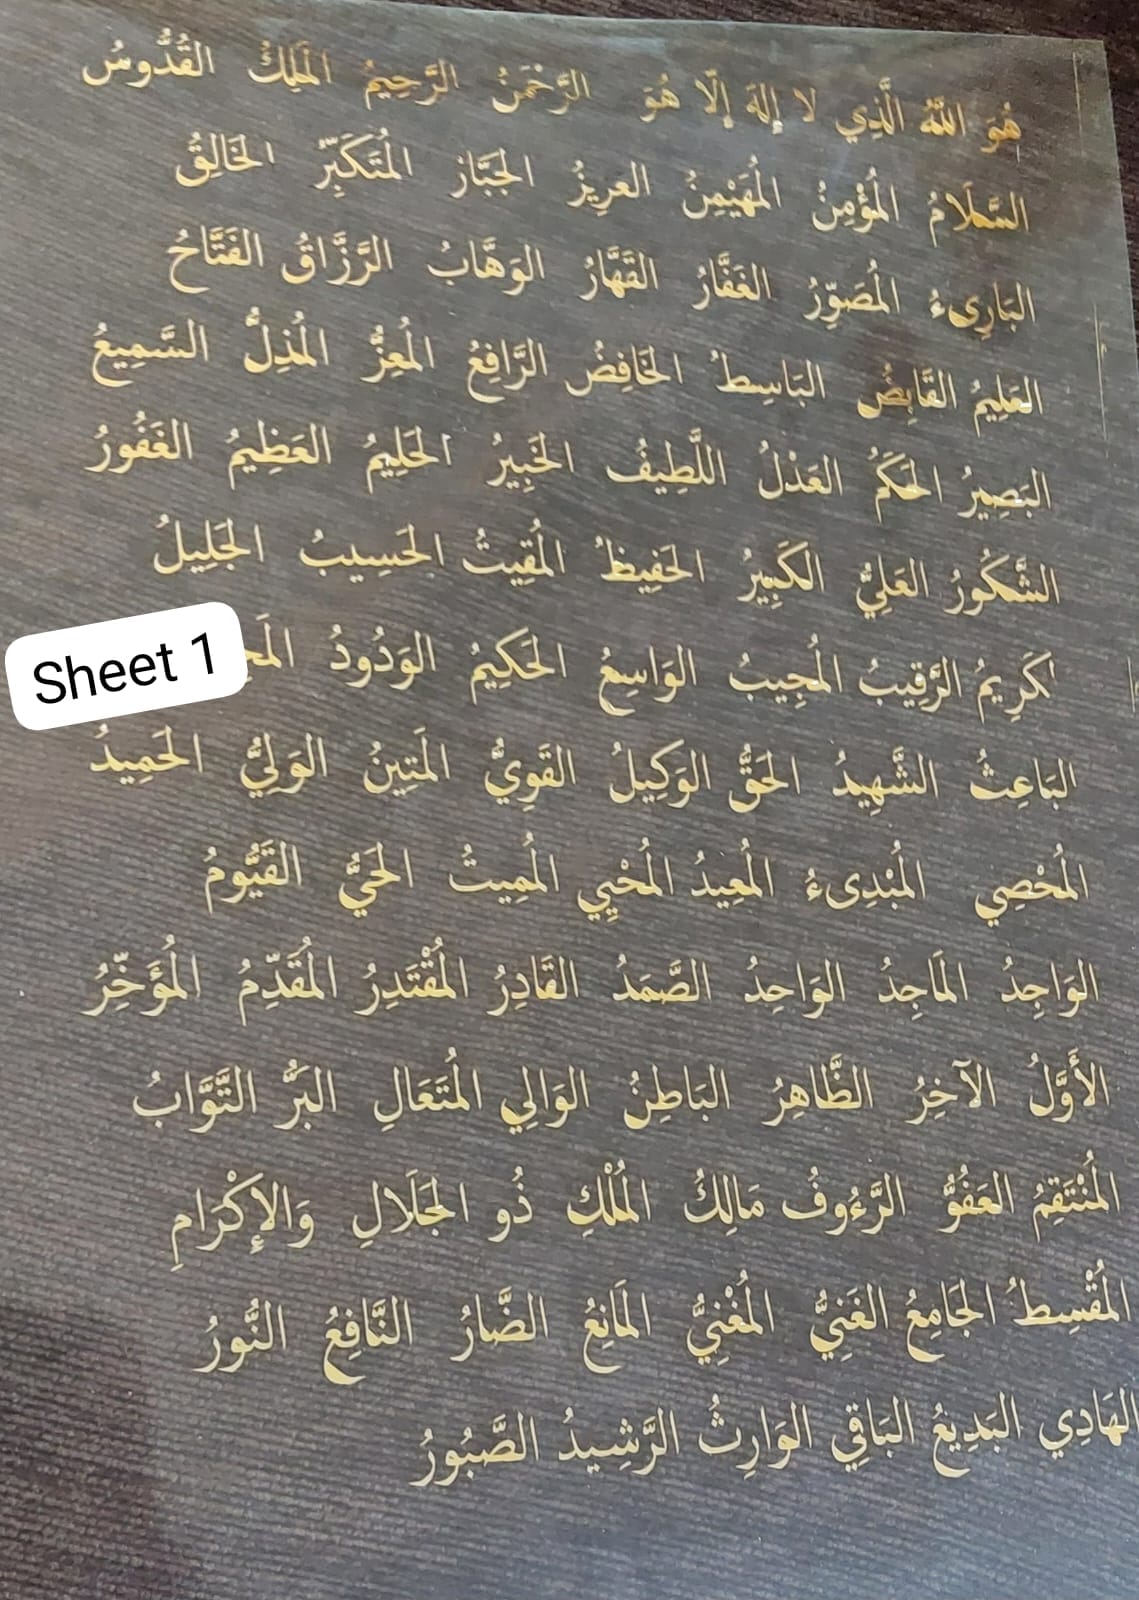 هُوَ اللَّهُ الَّذِي لا إِلهَ إِلّا هُوَ الرَّحْمَنُ الرَّحِيمُ المَلِكُ القُدُّوسُ
السَّلَامُ المُؤْمِنُ المُهَيْمِنُ العَزِيزُ الجَبَّارُ المُتَكَبِّرُ الخَالِقُ
البَارِىءُ المُصَوِّرُ الغَفَّارُ القَهَّارُ الوَهَّابُ الرَّزَّاقُ الفَتَّاحُ
العَلِيمُ القَابِضُ البَاسِطُ الخَافِضُ الرَّافِعُ المُعِزُّ المُذِلُّ السَّمِيعُ
البَصِيرُ الحَكَمُ العَدْلُ اللَّطِيفُ الخَبِيرُ الحَلِيمُ العَظِيمُ الغَفُورُ
الشَّكُورُ العَلِيُّ الكَبِيرُ الحَفِيظُ المُقِيتُ الحَسِيبُ الجَلِيلُ
الكَرِيمُ الرَّقِيبُ المُجِيبُ الوَاسِعُ الحَكِيمُ الوَدُودُ
Sheet 1
البَاعِثُ الشَّهِيدُ الحَقُّ الوَكِيلُ القَوِيُّ المَتِينُ الوَلِيُّ الحَمِيدُ
المُحْصِي المُبْدِىءُ المُعِيدُ المُحْيِي المُمِيتُ الحَيُّ القَيُّومُ
الوَاجِدُ المَاجِدُ الوَاحِدُ الصَّمَدُ القَادِرُ المُقْتَدِرُ المُقَدِّمُ المُؤَخِّرُ
الأَوَّلُ الآخِرُ الظَّاهِرُ البَاطِنُ الوَالِي المُتَعَالِ البَرُّ التَّوَّابُ
المُنْتَقِمُ العَفُوُّ الرَّءُوفُ مَالِكُ المُلْكِ ذُو الجَلَالِ وَالإِكْرَامِ
المُقْسِطُ الجَامِعُ الغَنِيُّ المُغْنِيُّ المَانِعُ الضَّارُ النَّافِعُ النُّورُ
الهَادِي البَدِيعُ البَاقِي الوَارِثُ الرَّشِيدُ الصَّبُورُ